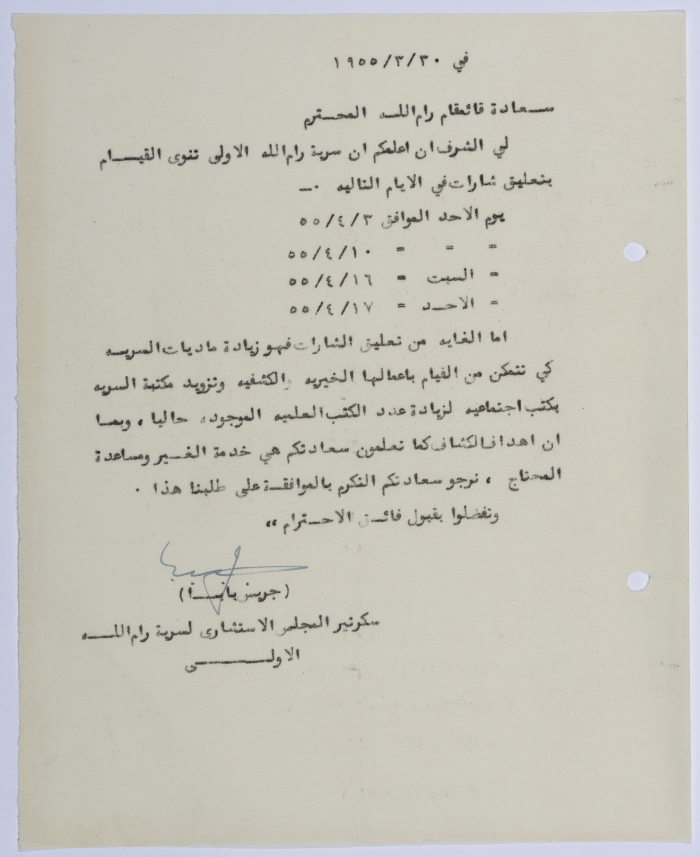 في ٣٠/٣/١٩٥٥
سعادة قائمقام رام الله المحترم
لي الشرف ان اعلمكم ان سرية رام الله الاولى تنوى القيام
بتعليق شارات في الايام التاليه .ــ
يوم الاحد الموافق ٥٥/٤/٣
= = = ٥٥/٤/١٠
= السبت = ٥٥/٤/١٦
= الاحد = ٥٥/٤/١٧
اما الغايه من تعليق الشارات فهو زيادة ماديات السريه
كي تتمكن من القيام باعمالها الخيريه والكشفيه وتزويد مكتبة السريه
بكتب اجتماعيه لزيادة عدد الكتب العلميه الموجوده حاليا ، وبما
ان اهداف الكشاف كما تعلمون سعادتكم هي خدمة الغير ومساعدة
المحتاج ، نرجو سعادتكم التكرم بالموافقة على طلبنا هذا .
وتفضلوا بقبول فائق الاحترام ،،
(جريس )
سكرتير المجلس الاستشارى لسرية رام الله
الاولى